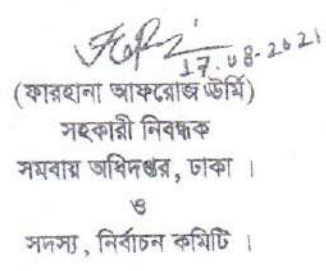 17.08-2021
(ফারহানা আফরোজ ঊর্মি)
সহকারী নিবন্ধক
সমবায় অধিদপ্তর, ঢাকা ।
ও
সদস্য, নির্বাচন কমিটি ।